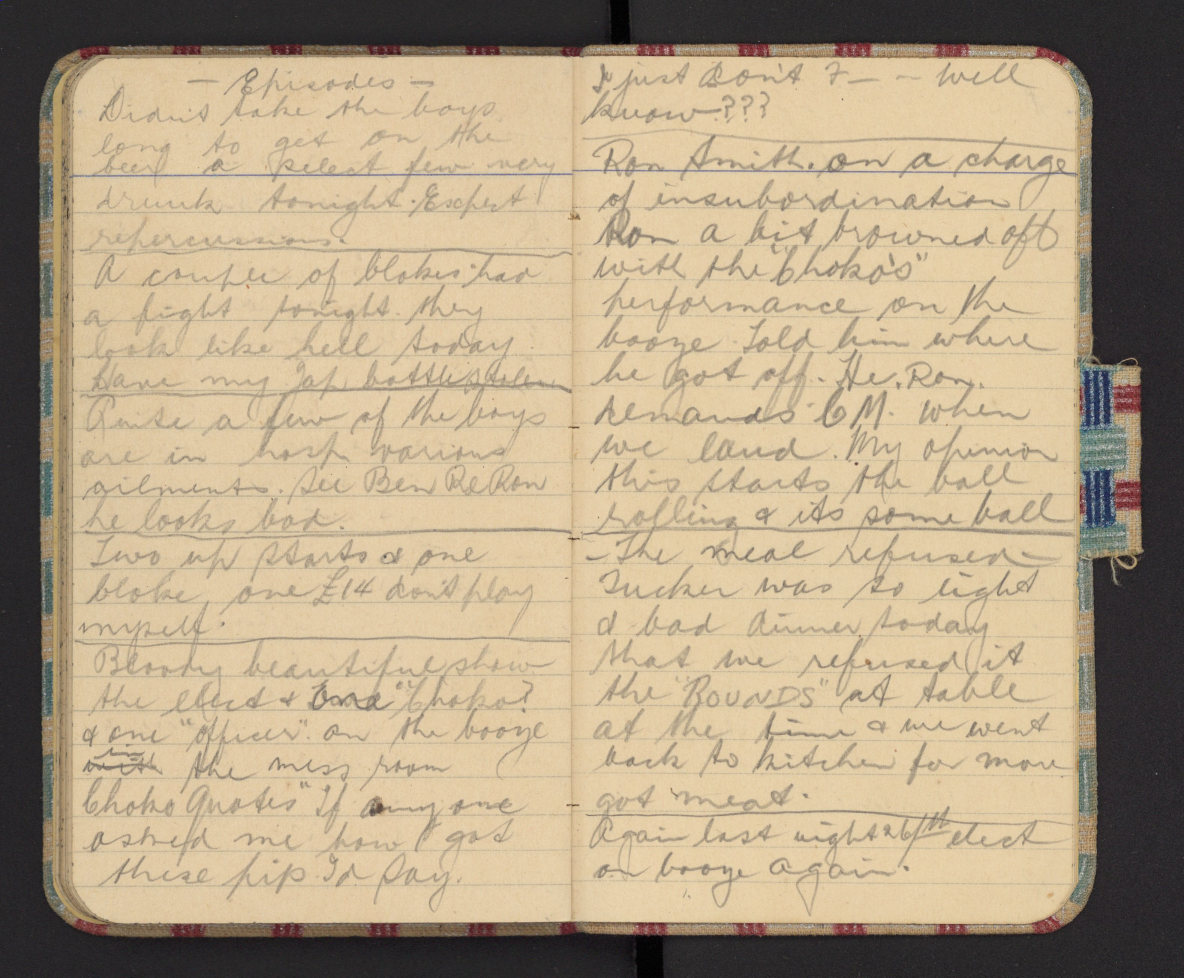 — Episodes —
Didn't take the boys
long to get on the
beer a select few very
drunk tonight. Expect
repercussions.
A couple of blokes had
a fight tonight. they
look like hell today.
Have my Jap. bottle stolen
Quite a few of the boys
are in hosp various
ailments. See Ben Re Ron
he looks bad.
Two up starts & one
bloke, one £14 don't play
myself.
Bloody beautiful show
the elect & "Choko?
& one "officer" on the booze
in the mess room
Choko Quotes "If any one
asked me how I got
these pips I'd say.
I just don't ? — ~ Well
know???
Ron Smith. on a charge
of insubordination
Ron a bit browned off
with the "Choko's"
performance on the
booze. Told him where
he got off. He. Ron.
demands C M. when
we land. My opinion
this starts the ball
rolling & its some ball
— The meal refused —
Tucker was so light
& bad dinner today
that we refused it
the "ROUNDS" at table
at the time & we went
back to kitchen for more
got meat.
Again last night 26/th elect
on booze again.